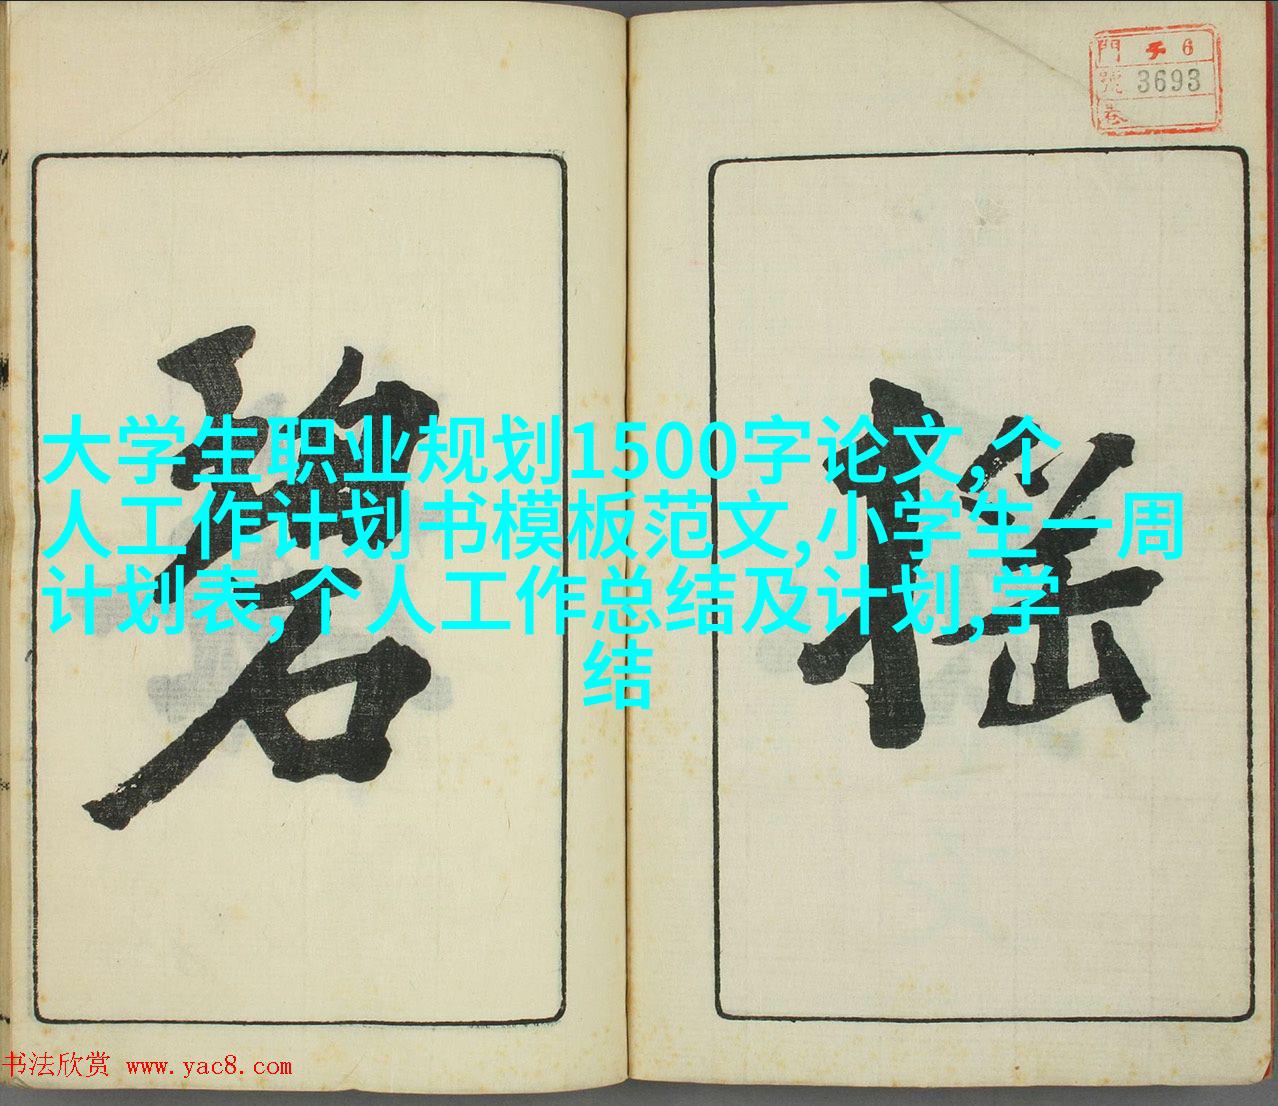 門 千 6
號 3693
卷
搖
碧
大学生职业规划1500字论文,个
人工作计划书模板范文,小学生一周
计划表,个人工作总结及计划,学
结
书法欣赏 www.yac8.com